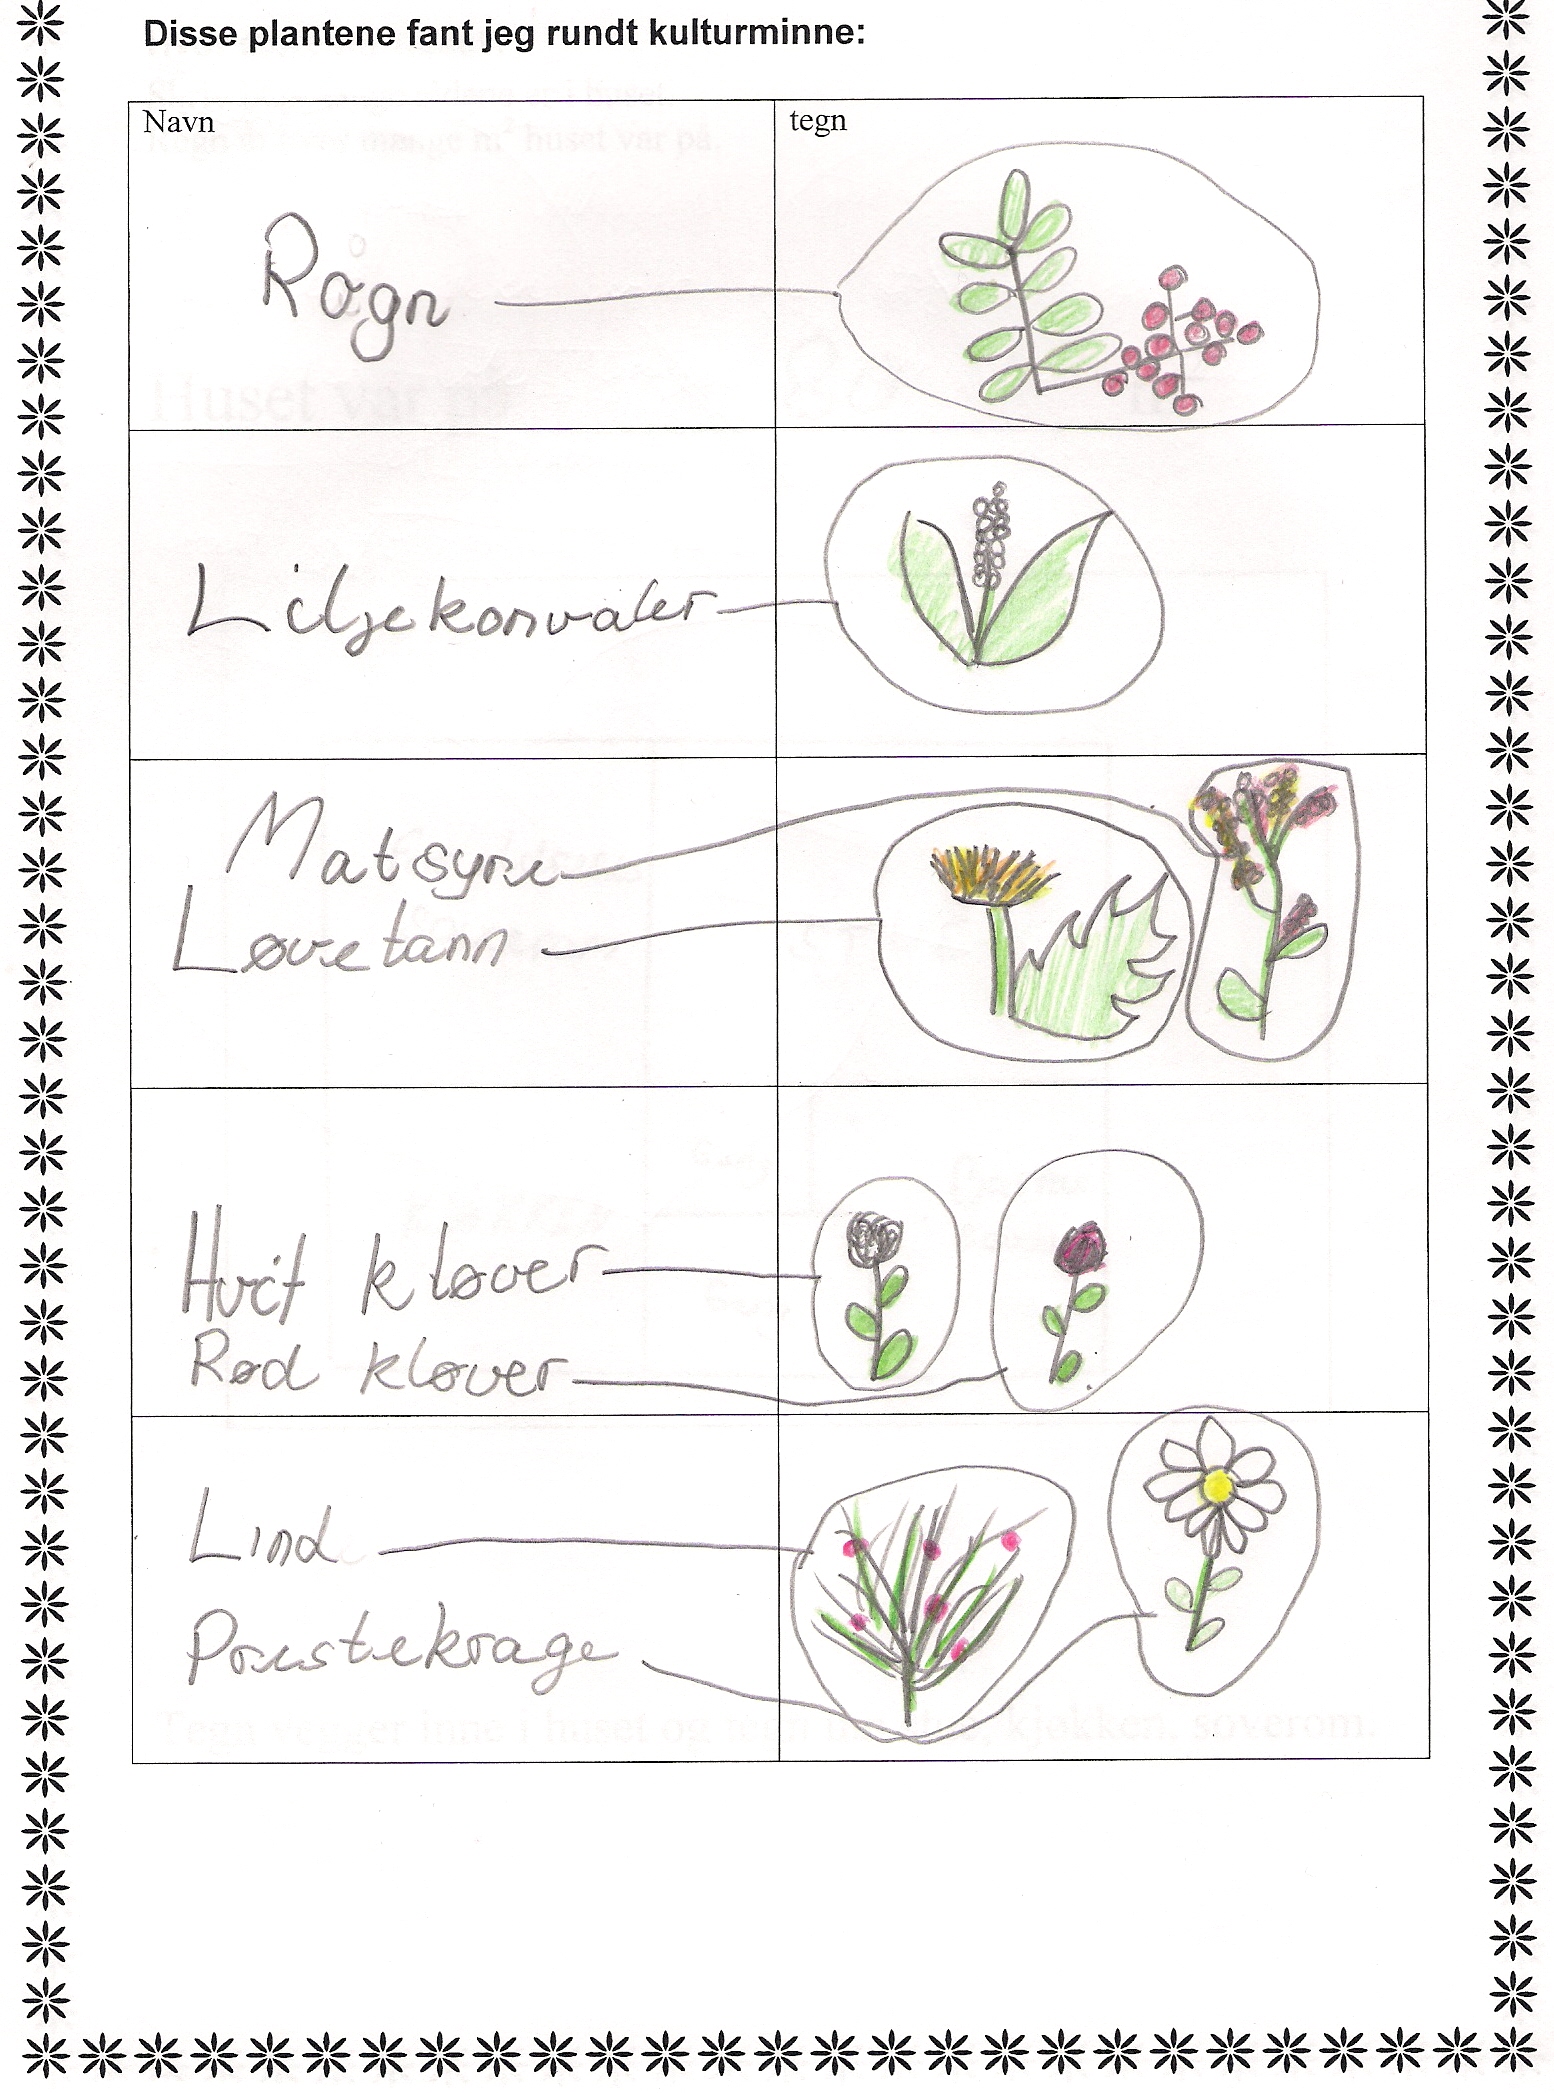 Disse plantene fant jeg rundt kulturminne:
Navn
tegn
Rogn
Liljekonvaler
Matsyre
Løvetann
Hvit kløver
Rød kløver
Lind
Prestekrage